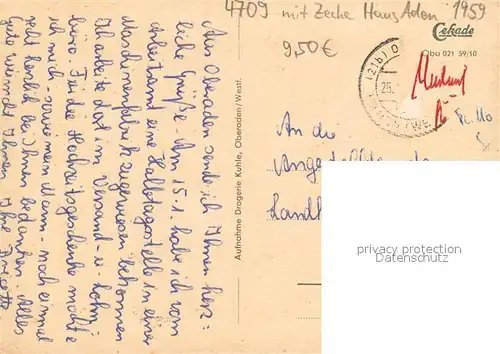 4709 mit Zeche Haus Aden 1959
9,50€
Cekade
Obu 021 59/10
(21b) O
25.
Aus Oberaden sende ich Ihnen herz-
liche Grüße. Am 15.1. habe ich vom
Arbeitsamt eine Halbtagsstelle in einer
Maschinenfabrik zugewiesen bekommen
Ich arbeite dort im Versand- u. Lohn-
büro. Für die Hochzeitsgeschenke möchte
ich mich - sowie mein Mann - noch einmal
recht herzlich bei Ihnen bedanken. Alles
Gute wünscht Ihnen Ihre
Aufnahme Drogerie Kuhle, Oberaden/Westf.
An die
Angestellten
Landk
privacy protection
Datenschutz